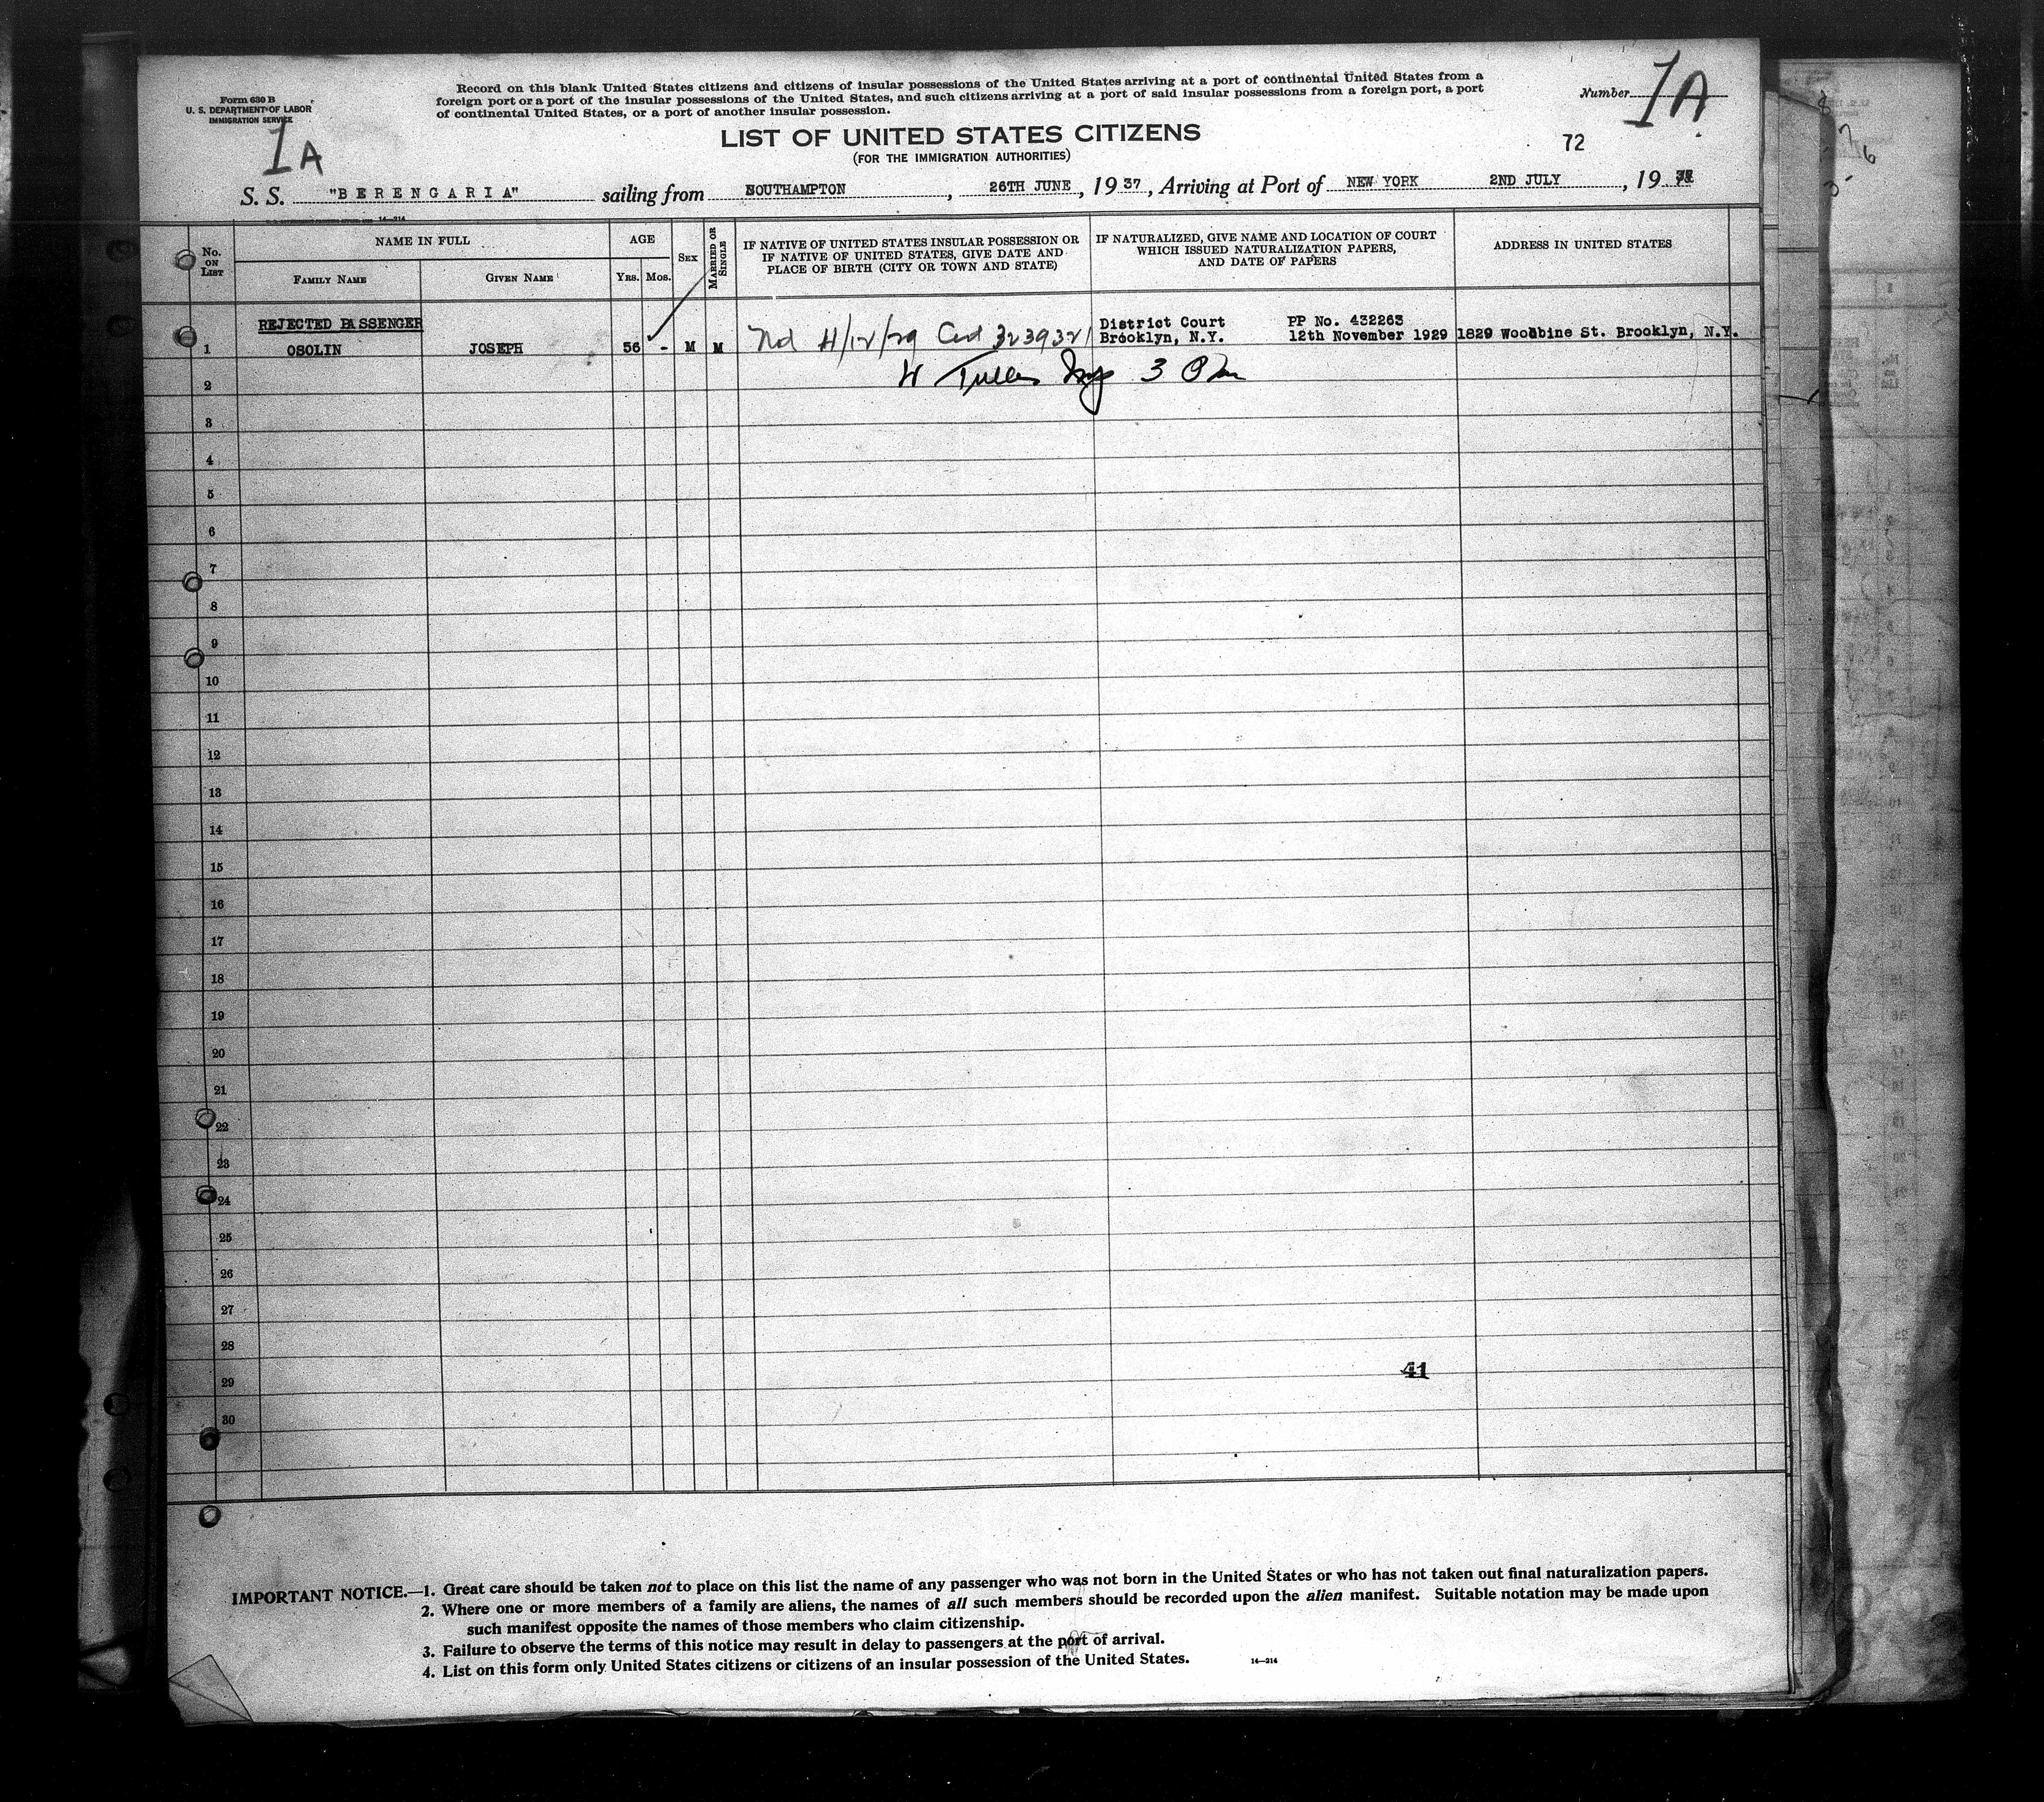 Form 630 B
U. S. DEPARTMENT OF LABOR
IMMIGRATION SERVICE
1A
Record on this blank United States citizens and citizens of insular possessions of the United States arriving at a port of continental United States from a
foreign port or a port of the insular possessions of the United States, and such citizens arriving at a port of said insular possessions from a foreign port, a port
of continental United States, or a port of another insular possession.
Number 1A
LIST OF UNITED STATES CITIZENS
(FOR THE IMMIGRATION AUTHORITIES)
72
S. S. "BERENGARIA" sailing from SOUTHAMPTON, 26TH JUNE, 1937, Arriving at Port of NEW YORK 2ND JULY, 19
14—214
No. ON LIST
NAME IN FULL
FAMILY NAME
GIVEN NAME
AGE
YRS. MOS.
SEX
MARRIED OR SINGLE
IF NATIVE OF UNITED STATES INSULAR POSSESSION OR
IF NATIVE OF UNITED STATES, GIVE DATE AND
PLACE OF BIRTH (CITY OR TOWN AND STATE)
IF NATURALIZED, GIVE NAME AND LOCATION OF COURT
WHICH ISSUED NATURALIZATION PAPERS,
AND DATE OF PAPERS
ADDRESS IN UNITED STATES
REJECTED PASSENGER
1 OSOLIN JOSEPH 56 - M M 11/12/29 3239321 District Court PP No. 432263
Brooklyn, N.Y. 12th November 1929 1829 Woodbine St. Brooklyn, N.Y.
2
3
4
5
6
7
8
9
10
11
12
13
14
15
16
17
18
19
20
21
22
23
24
25
26
27
28
29
30
41
IMPORTANT NOTICE.—1. Great care should be taken not to place on this list the name of any passenger who was not born in the United States or who has not taken out final naturalization papers.
2. Where one or more members of a family are aliens, the names of all such members should be recorded upon the alien manifest. Suitable notation may be made upon
such manifest opposite the names of those members who claim citizenship.
3. Failure to observe the terms of this notice may result in delay to passengers at the port of arrival.
4. List on this form only United States citizens or citizens of an insular possession of the United States.
14—214